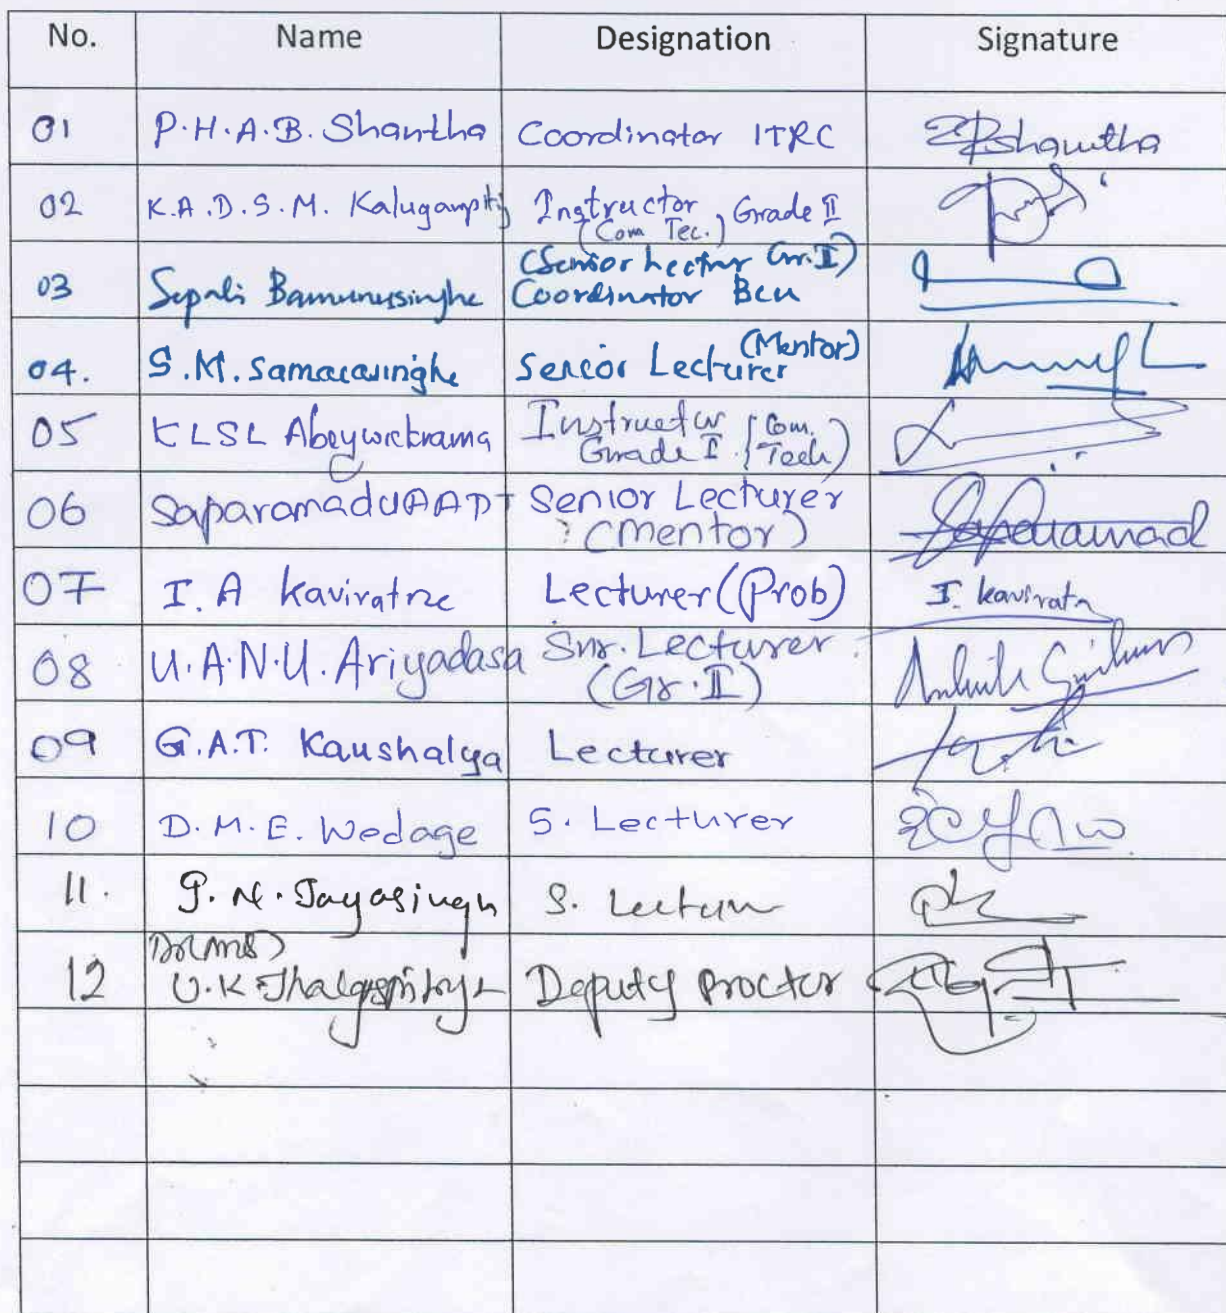 No. Name Designation Signature
01 P.H.A.B. Shantha Coordinator ITRC Shantha
02 K.A.D.S.M. Kalugampitiy Instructor Grade II
(Com Tec.)
(Senior Lectur Gr.II)
03 Sepali Bamunusinghe Coordinator BCU
(Mentor)
04. S.M. Samarasinghe Senior Lecturer
05 KLSL Abeywickrama Instructor (Com.
Grade I Tech)
06 Saparamadu AADT Senior Lecturer
(Mentor)
07 I. A Kaviratne Lecturer (Prob) I. Kaviratn
08 U.A.N.U. Ariyadasa Snr. Lecturer
(Gr.II)
09 G.A.T. Kaushalya Lecturer
10 D.M.E. Wedage S. Lecturer
11. S. Lecturer
Dr(Mrs)
12 U.K Deputy Proctor